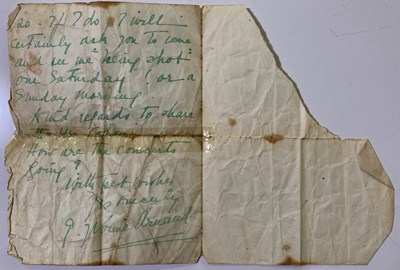 so. If I do I will
certainly ask you to come
and see me "being shot"
one Saturday! or a
Sunday morning.
Kind regards to share
How are the concerts
going?
With best wishes
Yrs sincerely